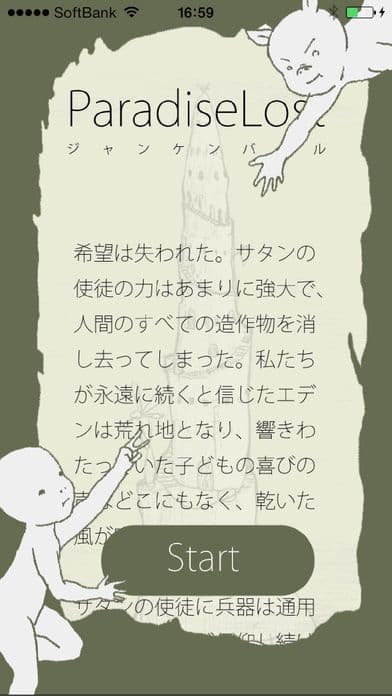 SoftBank 16:59
ParadiseLost
ジャンケンバトル
希望は失われた。サタンの
使徒の力はあまりに強大で、
人間のすべての造作物を消
し去ってしまった。私たち
が永遠に続くと信じたエデ
ンは荒れ地となり、響きわ
たっていた子どもの喜びの
声はどこにもなく、乾いた
風が
Start
サタンの使徒に兵器は通用